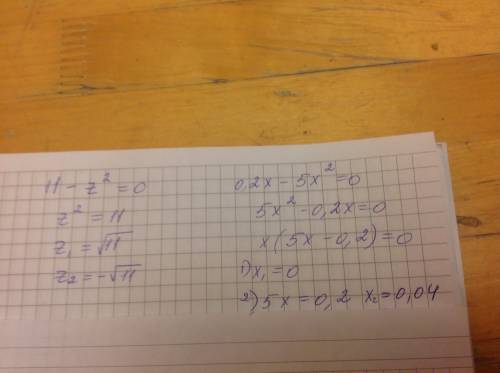 11 - z² = 0
z² = 11
z₁ = √11
z₂ = -√11
0,2x - 5x² = 0
5x² - 0,2x = 0
x(5x - 0,2) = 0
1) x₁ = 0
2) 5x = 0,2 x₂ = 0,04